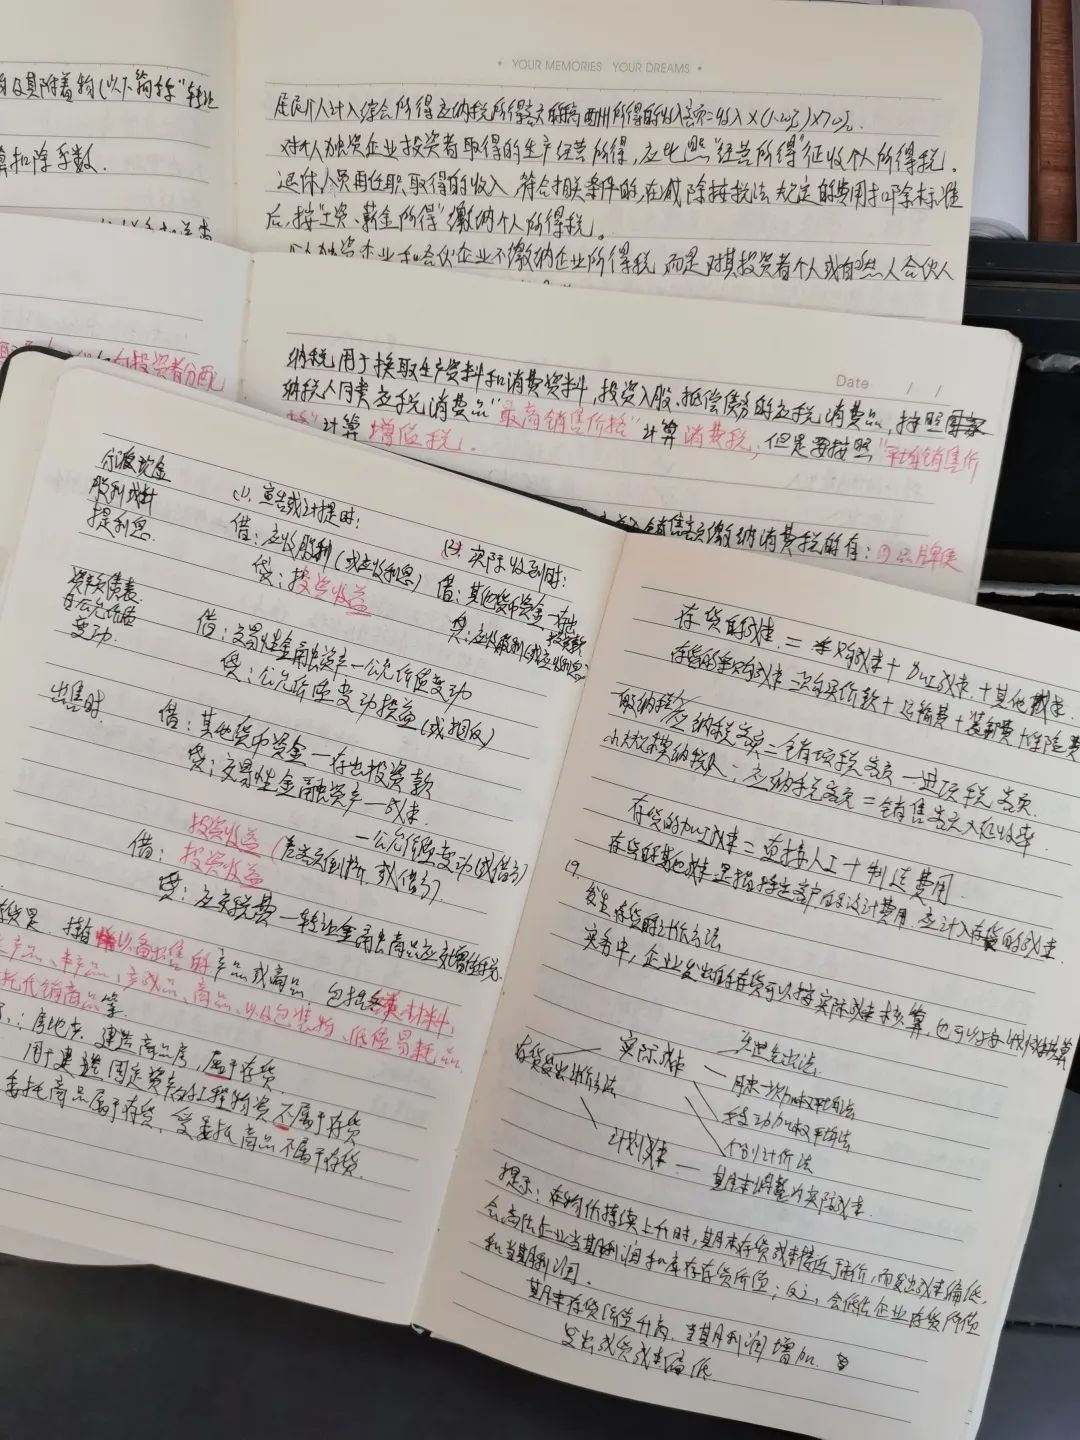 及其附着物(以下简称"转让
扣除系数.
YOUR MEMORIES YOUR DREAMS
居民个人计入综合所得应纳税所得额的稿酬所得的收入额=收入×(1-20%)×70%.
对个人独资企业投资者取得的生产经营所得,应比照"经营所得"征收个人所得税。
退休人员再任职取得的收入,符合相关条件的,在减除按税法规定的费用扣除标准
后,按"工资、薪金所得"缴纳个人所得税。
个人独资企业和合伙企业不缴纳企业所得税,而是对其投资者个人或自然人合伙人
向投资者分配
Date / /
纳税用于换取生产资料和消费资料,投资入股、抵偿债务的应税消费品,按照
纳税人同类应税消费品"最高销售价格"计算消费税;但是要按照"平均销售价
格"计算增值税.
销售额缴纳消费税的有:
分派现金
股利或计
提利息.
(1).宣告或计提时:
借:应收股利(或应收利息)
贷:投资收益
(2).实际收到时:
借:其他货币资金—存出
投资款
贷:应收股利(或应收利息)
资产负债表
日公允价值
变动.
借:交易性金融资产—公允价值变动
贷:公允价值变动损益(或相反)
出售时.
借:其他货币资金—存出投资款
贷:交易性金融资产—成本.
—公允价值变动(或借方)
投资收益(差额倒挤.或借方).
借:投资收益
贷:应交税费—转让金融商品应交增值税.
存货是,指 以备出售的产品或商品,包括各类材料,
产品、半产品、产成品、商品、以及包装物、低值易耗品.
托代销商品等.
:房地产,建造商品房,属于存货
用于建造固定资产的工程物资不属于存货
委托商品属于存货,受委托商品不属于存货.
存货的成本=采购成本+加工成本+其他成本.
存货的采购成本=购买价款+运输费+装卸费+保险费
一般纳税人应纳税额=销项税额—进项税额.
小规模纳税人:应纳税额=销售额×征收率
存货的加工成本=直接人工+制造费用.
存货的其他成本是指特定客户的设计费用.应计入存货的成本.
19.
发出存货的计价方法
实务中,企业发出的存货可以按实际成本核算,也可以按计划成本核算
存货发出计价方法
实际成本
先进先出法.
月末一次加权平均法
移动加权平均法
个别计价法
计划成本—期末调整为实际成本.
提示:在物价持续上升时,期末存货成本接近于市价,而发出成本偏低,
会高估企业当期利润和库存存货价值;反之,会低估企业存货价值
和当期利润.
期末存货价值升高.当期利润增加.
发出存货成本偏低.